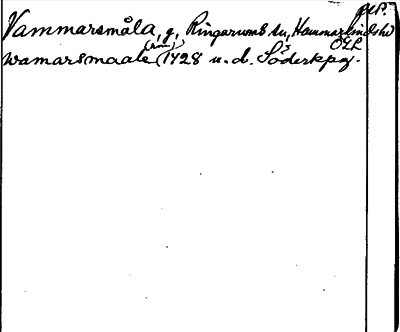 Vammarsmåla, g, Ringarums sn, Hammarkinds hd
ÖGL
wamarsmaale 1428 u. d. Söderkpg.